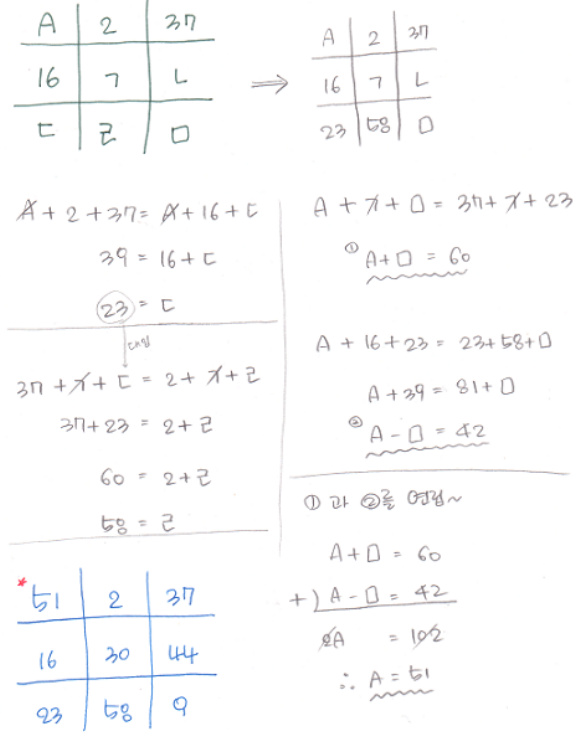 A 2 37
16 ㄱ ㄴ
ㄷ ㄹ ㅁ
⇒
A 2 37
16 ㄱ ㄴ
23 58 ㅁ
A + 2 + 37 = A + 16 + ㄷ
39 = 16 + ㄷ
23 = ㄷ
대입
37 + ㄱ + ㄷ = 2 + ㄱ + ㄹ
37 + 23 = 2 + ㄹ
60 = 2 + ㄹ
58 = ㄹ
* 51 2 37
16 30 44
23 58 9
A + ㄱ + ㅁ = 37 + ㄱ + 23
① A + ㅁ = 60
A + 16 + 23 = 23 + 58 + ㅁ
A + 39 = 81 + ㅁ
② A - ㅁ = 42
① 과 ②를 연립~
A + ㅁ = 60
+) A - ㅁ = 42
2A = 102
∴ A = 51